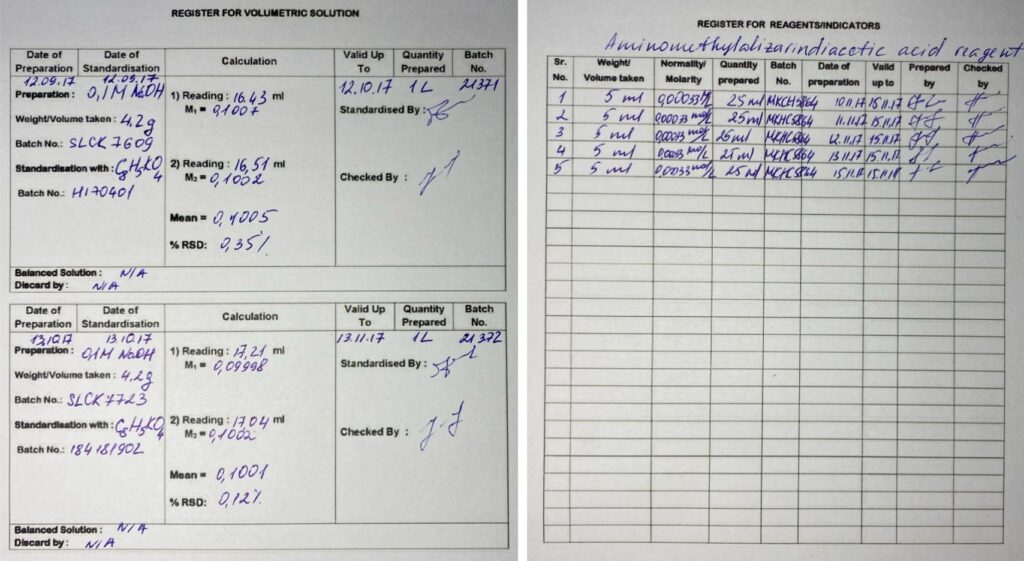 REGISTER FOR VOLUMETRIC SOLUTION
Date of Preparation Date of Standardisation Calculation Valid Up To Quantity Prepared Batch No.
12.09.17 12.09.17 12.10.17 1L 21371
Preparation : 0,1M NaOH
1) Reading : 16.43 ml
M1 = 0,1007
Standardised By :
Weight/Volume taken : 4,2g
Batch No.: SLCK 7609
Standardisation with : C8H5KO4
2) Reading : 16,51 ml
M2 = 0,1002
Checked By :
Batch No.: H170401
Mean = 0,1005
% RSD: 0,35%
Balanced Solution : N/A
Discard by : N/A
Date of Preparation Date of Standardisation Calculation Valid Up To Quantity Prepared Batch No.
13.10.17 13.10.17 13.11.17 1L 21372
Preparation : 0,1M NaOH
1) Reading : 17,21 ml
M1 = 0,09998
Standardised By :
Weight/Volume taken : 4,2g
Batch No.: SLCK 7723
Standardisation with : C8H5KO4
2) Reading : 17,04 ml
M2 = 0,1002
Checked By :
Batch No.: 184181902
Mean = 0,1001
% RSD: 0,12%
Balanced Solution : N/A
Discard by : N/A
REGISTER FOR REAGENTS/INDICATORS
Aminomethylalizarindiacetic acid reagent
Sr. No. Weight/ Volume taken Normality/ Molarity Quantity prepared Batch No. Date of preparation Valid up to Prepared by Checked by
1 5 ml 25 ml 10.11.17 15.11.17
2 5 ml 25 ml 11.11.17 15.11.17
3 5 ml 25 ml 12.11.17 15.11.17
4 5 ml 25 ml 13.11.17 15.11.17
5 5 ml 25 ml